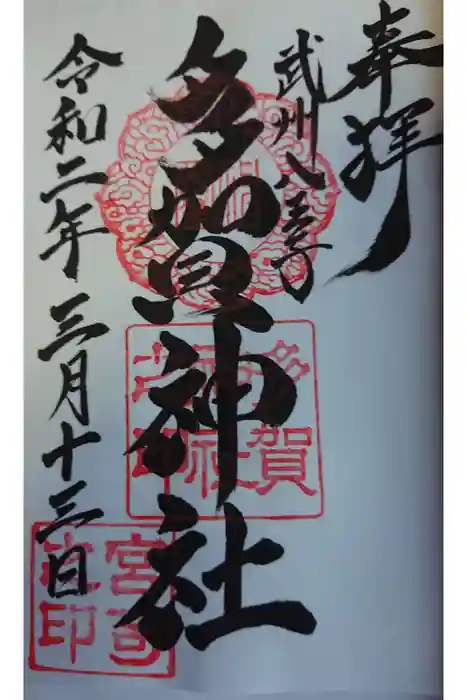 奉拝
武州八王子
多賀神社
令和二年 三月十三日
多賀
神社
之印
宮司
之印